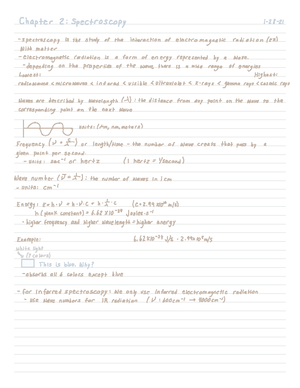 Chapter 2: Spectroscopy
1-28-21
- Spectroscopy is the study of the interaction of electromagnetic radiation (ER)
with matter
- Electromagnetic radiation is a form of energy represented by a wave.
- Depending on the properties of the wave, there is a wide range of energies
Lowest: Highest:
radiowaves < microwaves < infared < visible < ultraviolet < x-rays < gamma rays < cosmic rays
Waves are described by wavelength (λ): the distance from any point on the wave to the
corresponding point on the next wave
units: (nm, mm, meters)
Frequency
of length/time - the number of wave crests that pass by a
given point per second
- units: sec⁻¹ or hertz (1 hertz = 1/second)
Wave number
: the number of waves in 1 cm
- units: cm⁻¹
Energy:
h (planck constant) = 6.62 x10⁻³⁴ joules·s⁻¹
- higher frequency and higher wavelength = higher energy
Example:
white light
(7 colors)
This is blue. Why?
- absorbs all 6 colors except blue
- For infared spectroscopy: We only use infared electromagnetic radiation
- Use wave numbers for IR radiation